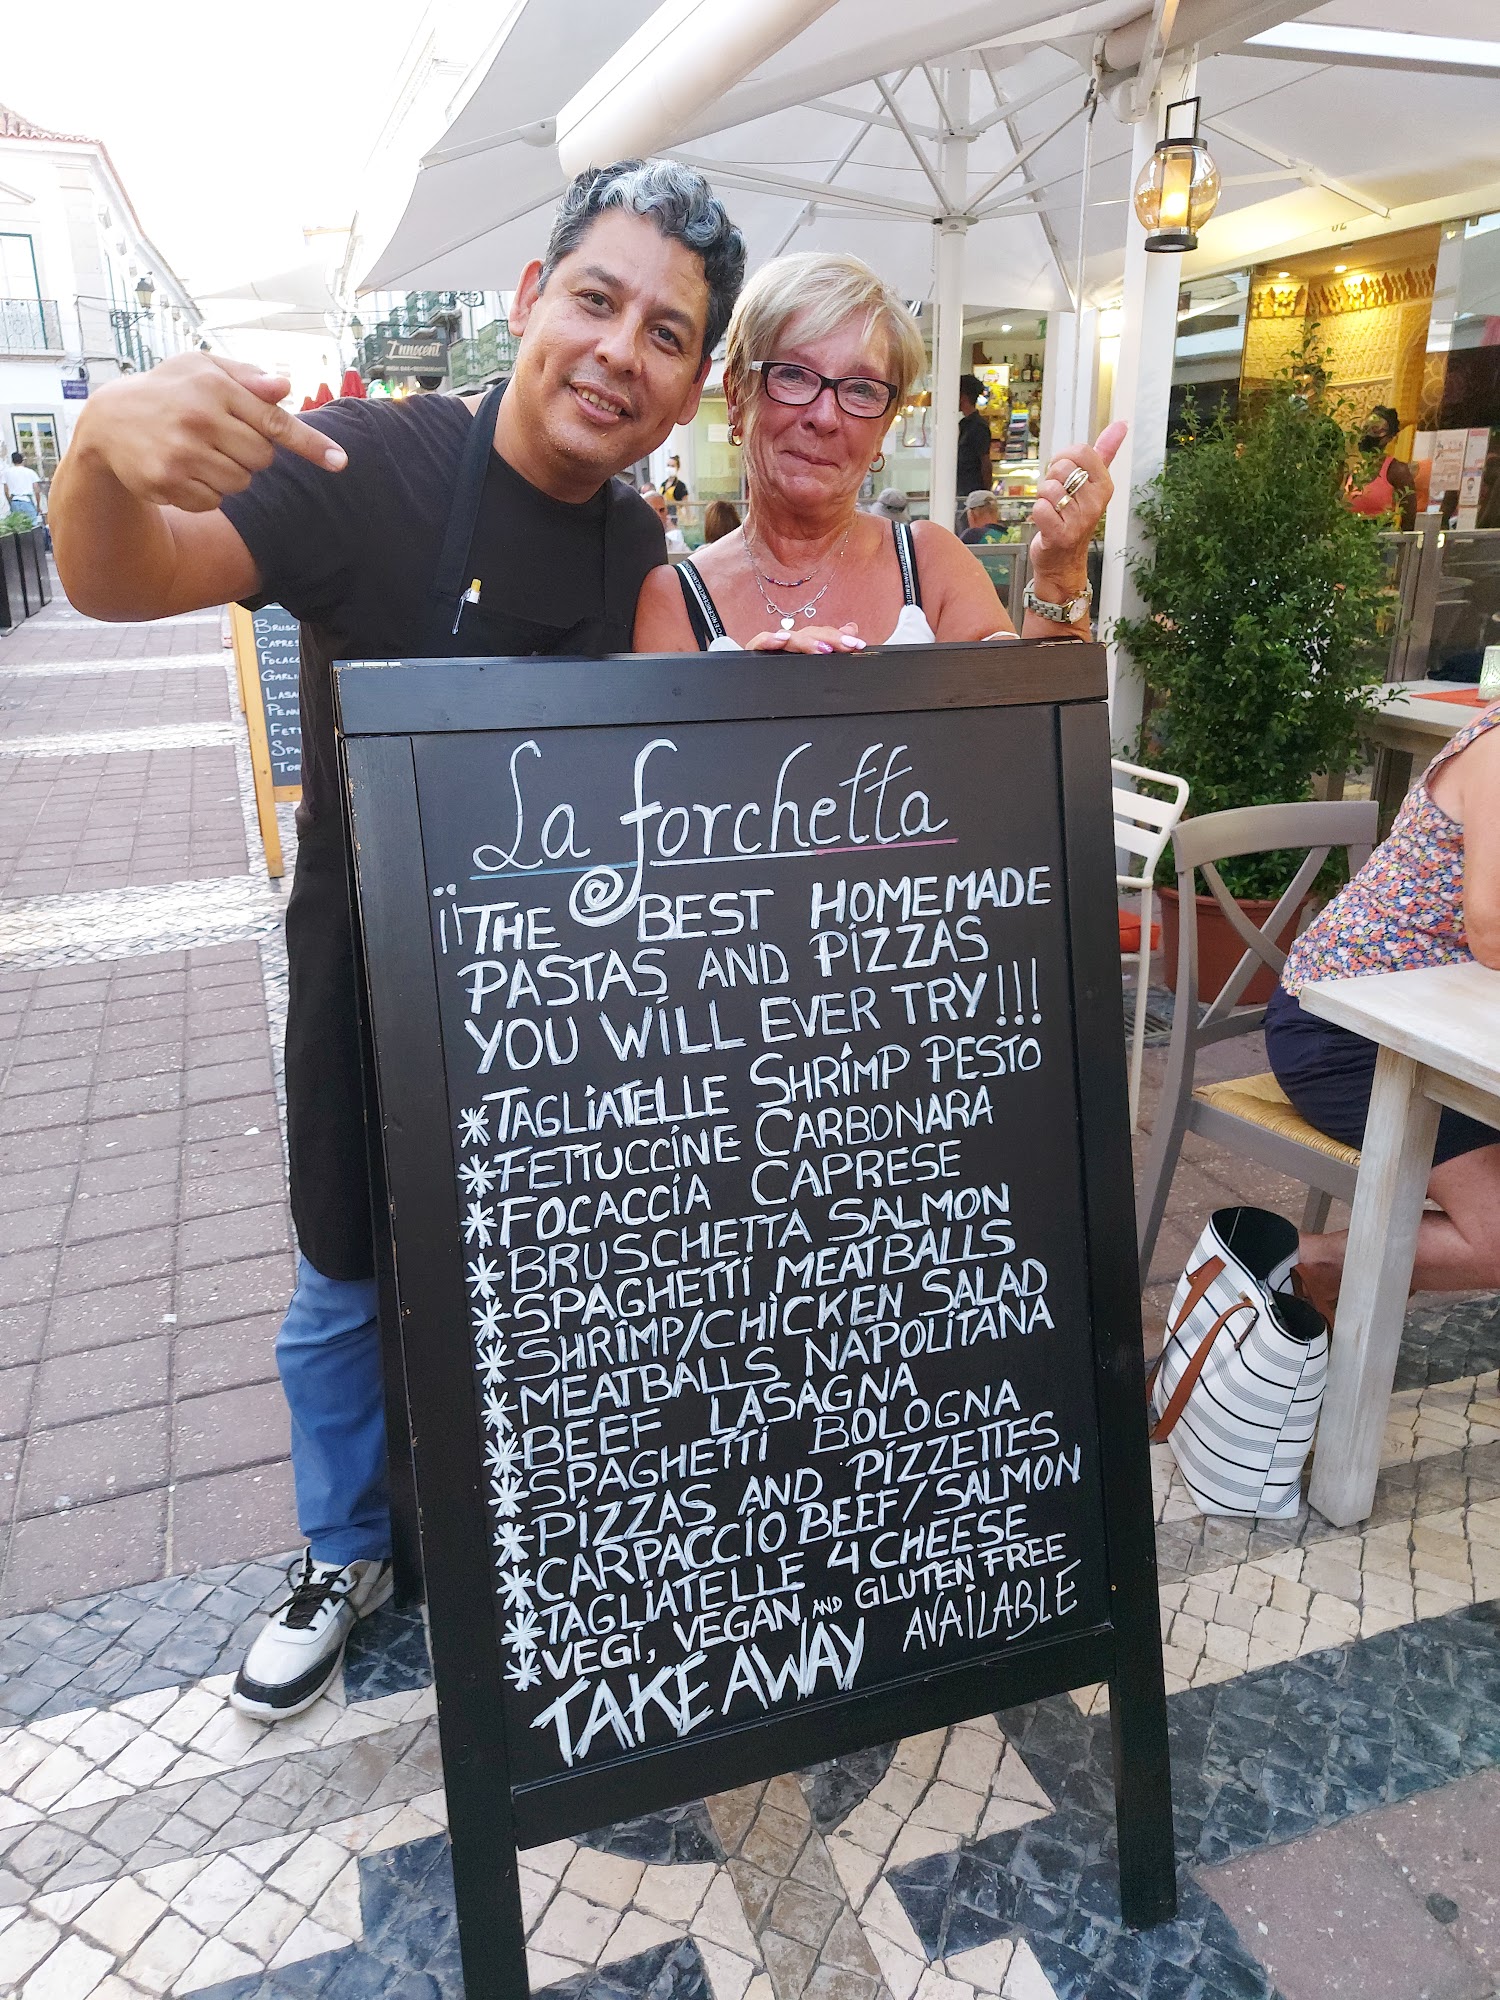 Innocent
BRUSC
CAPRES
FOCACC
GARLI
LASA
PENN
FETT
SPA
TOR
La forchetta
¡¡THE BEST HOMEMADE
PASTAS AND PIZZAS
YOU WILL EVER TRY!!!
*TAGLIATELLE SHRIMP PESTO
*FETTUCCINE CARBONARA
*FOCACCIA CAPRESE
*BRUSCHETTA SALMON
*SPAGHETTI MEATBALLS
*SHRIMP/CHICKEN SALAD
*MEATBALLS NAPOLITANA
*BEEF LASAGNA
*SPAGHETTI BOLOGNA
*PIZZAS AND PIZZETTES
*CARPACCIO BEEF/SALMON
*TAGLIATELLE 4 CHEESE
*VEGI, VEGAN AND GLUTEN FREE
TAKE AWAY AVAILABLE